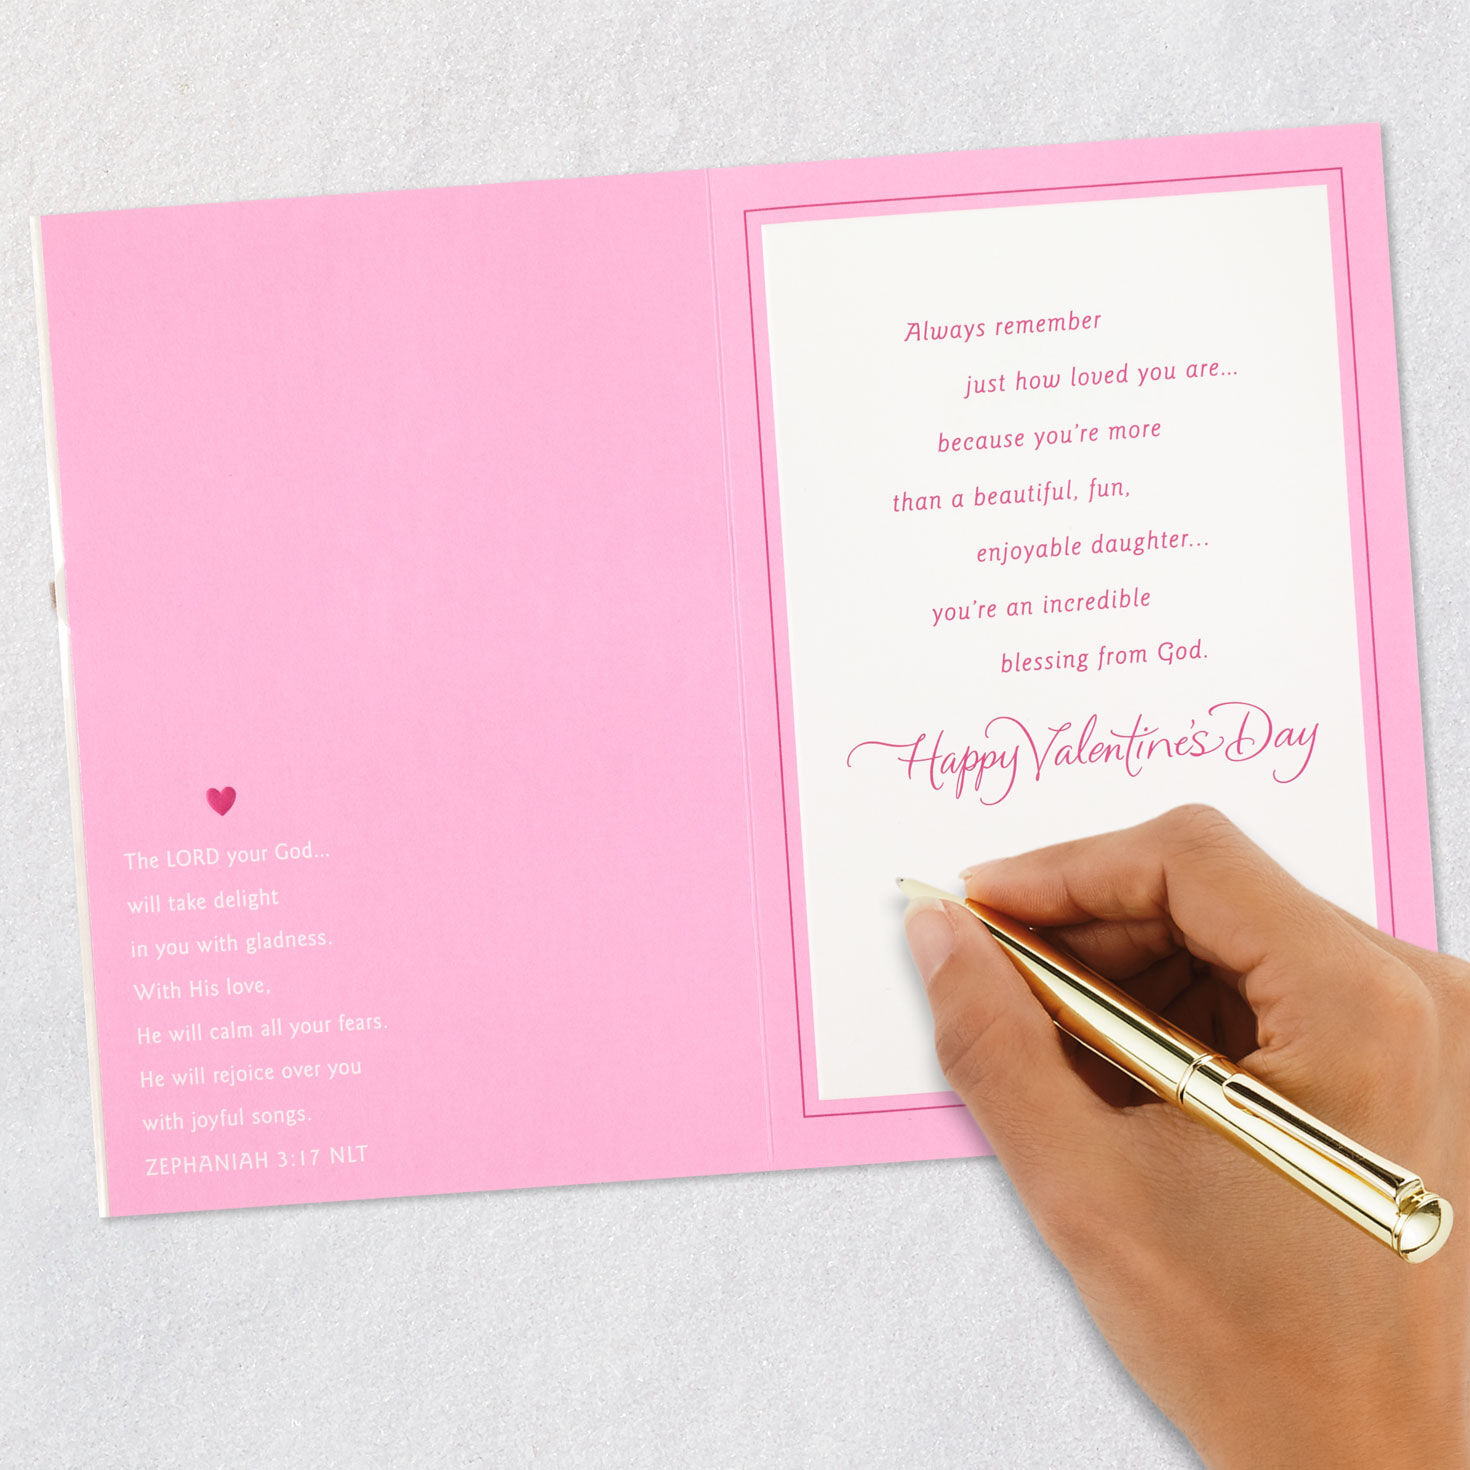 The LORD your God...
will take delight
in you with gladness.
With His love,
He will calm all your fears.
He will rejoice over you
with joyful songs.
ZEPHANIAH 3:17 NLT
Always remember
just how loved you are...
because you're more
than a beautiful, fun,
enjoyable daughter...
you're an incredible
blessing from God.
Happy Valentine's Day